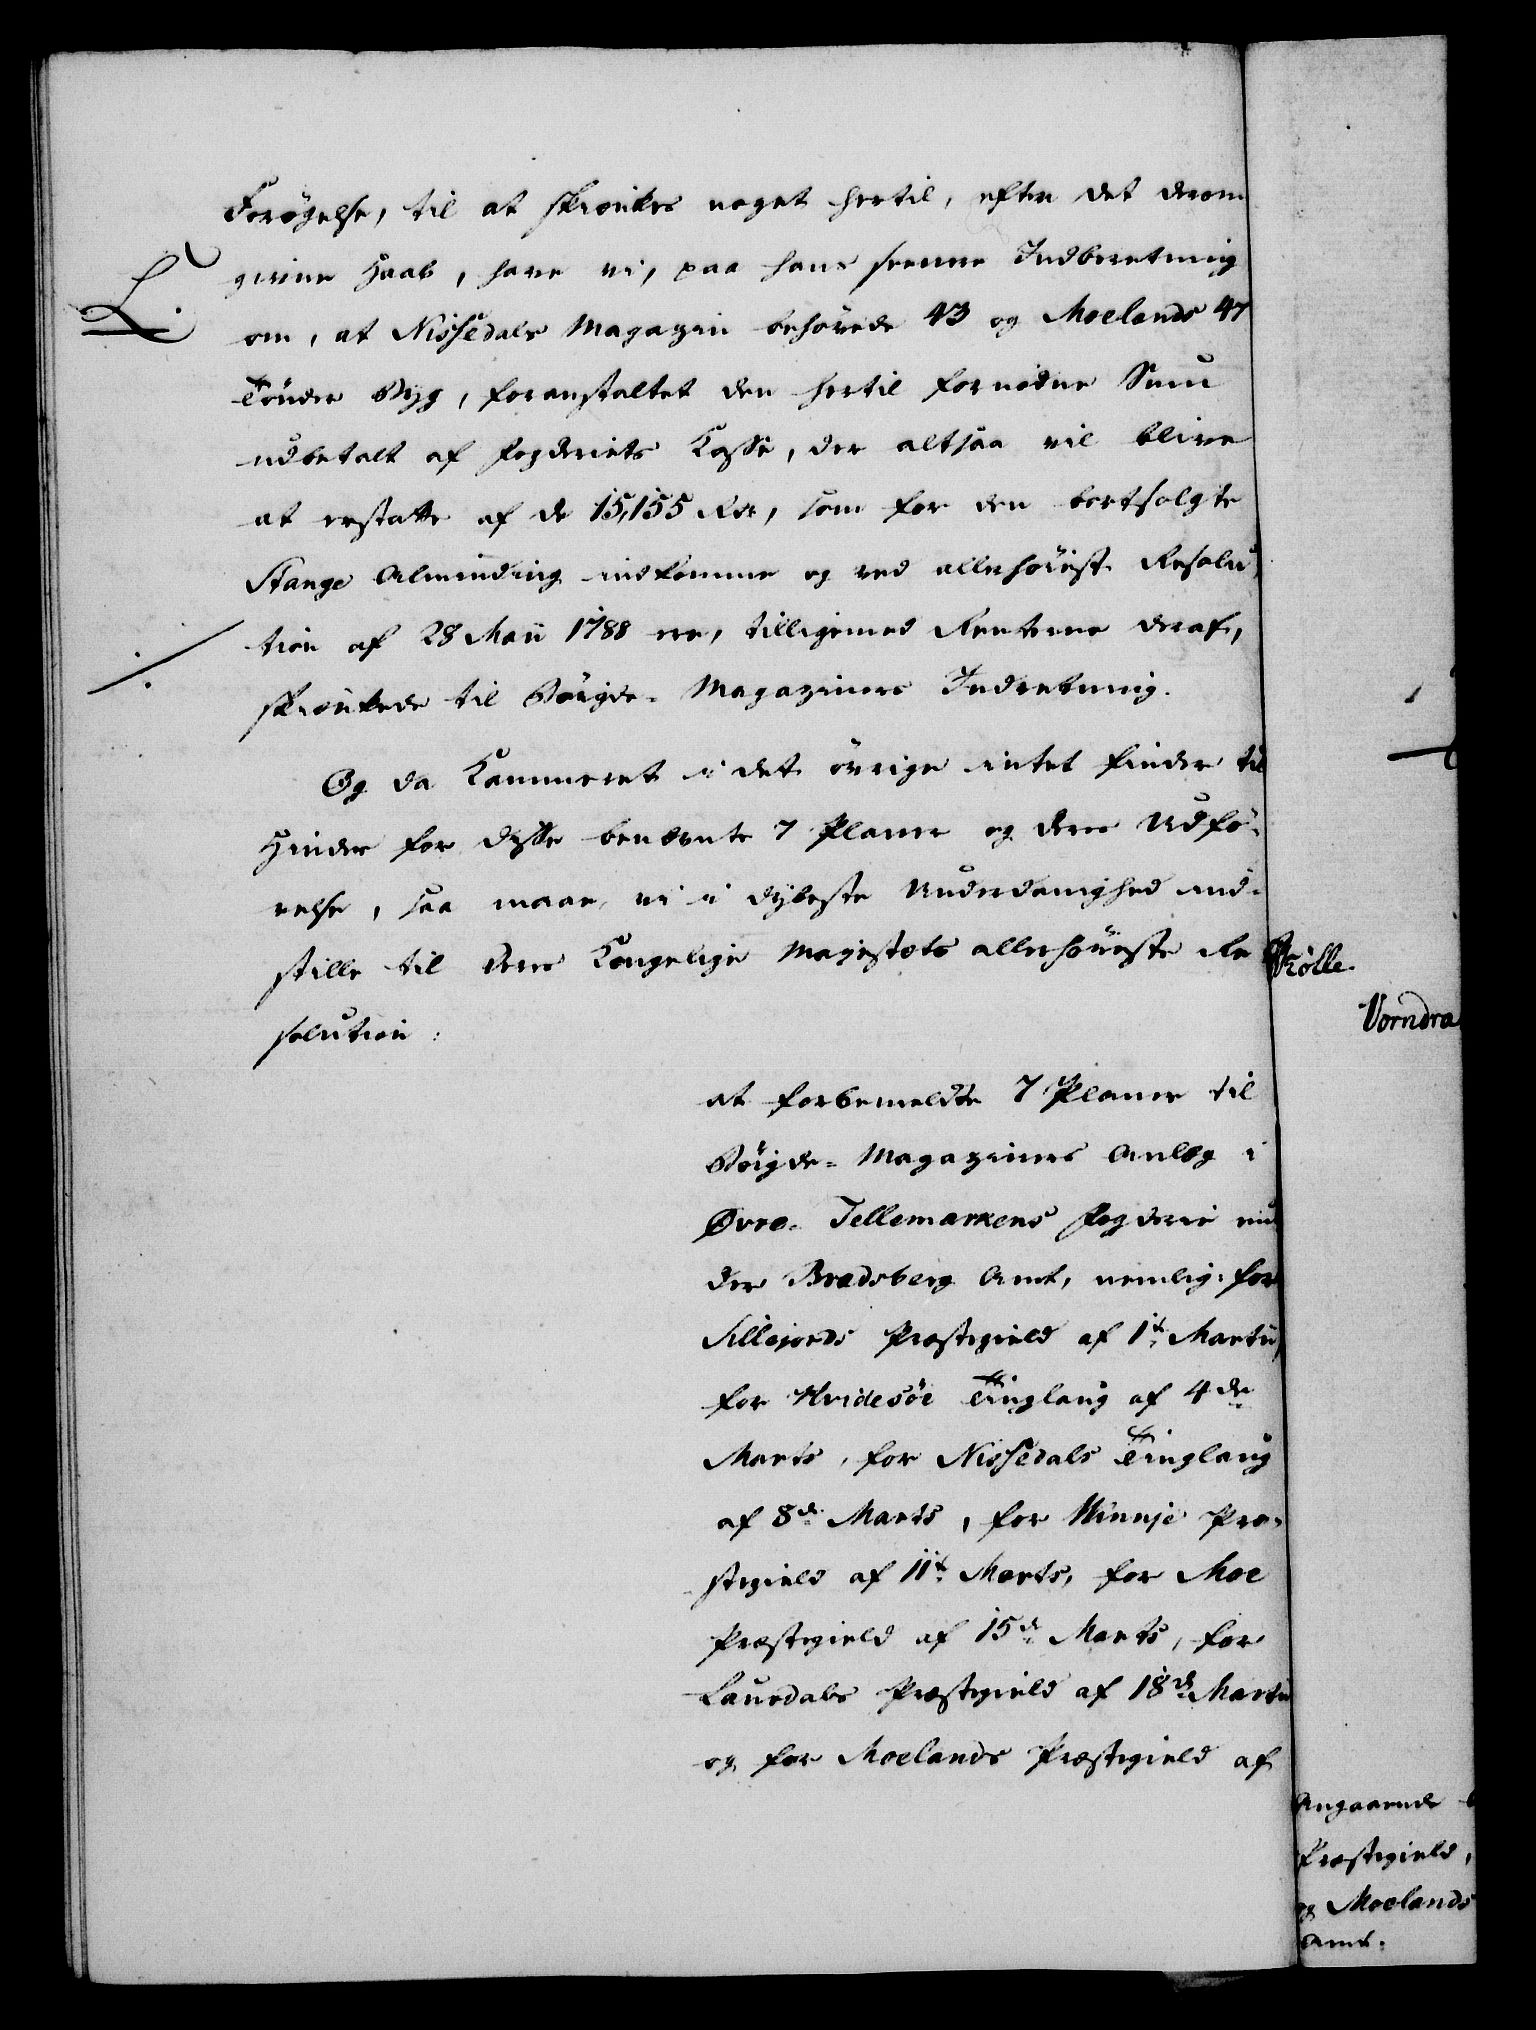 Forøgelse, til at skienkes noget hertil, efter det derom
givne Haab, have vi, paa hans seenere Indberetning
L.
om, at Nissedals Magazin behövede 43 og Moelands 47
Tönder Byg, foranstaltet den hertil fornødne Sum
udbetalt af Fogderiets Casse, der altsaa vil blive
at erstatte af de 15,155 Rdr, som for den bortsolgte
Stange Alminding indkomme og ved allerhöiest Resolu-
tion af 28 Maii 1788 ere, tilligemed Renterne deraf,
skienkede til Böigde-Magaziners Indretning.
Og da Kammeret i det övrige intet finder til
Hinder for disse benævnte 7 Planer og deres Udfö-
relse, saa maae vi i dybeste Underdanighed ind-
stille til Deres Kongelige Majestets allerhöieste Re
solution:
at forbemeldte 7 Planer til
Böigde-Magaziners Anlæg i
Øvre-Tellemarkens Fogderie un
der Bradsberg Amt, nemlig: for
Sillejords Præstegield af 1t Martii,
for Hvidesöe Tinglaug af 4de
Marts, for Nissedals Tinglaug
af 8de Marts, for Winnje Præ-
stegield af 11t Marts, for Moe
Præstegield af 15de Marts, for
Laurdals Præstegield af 18de Martii
og for Moelands Præstegield af
Trölle.
Vorndra
Angaaende
Præstegield,
og Moelands
Amt.